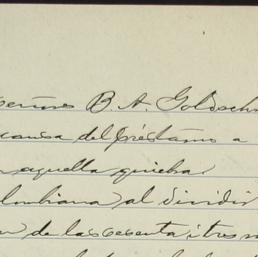 señores B. A. Goldsch
causa del préstamo a
aquella quiebra.
lombiana al dividir
de las sesenta i tres m